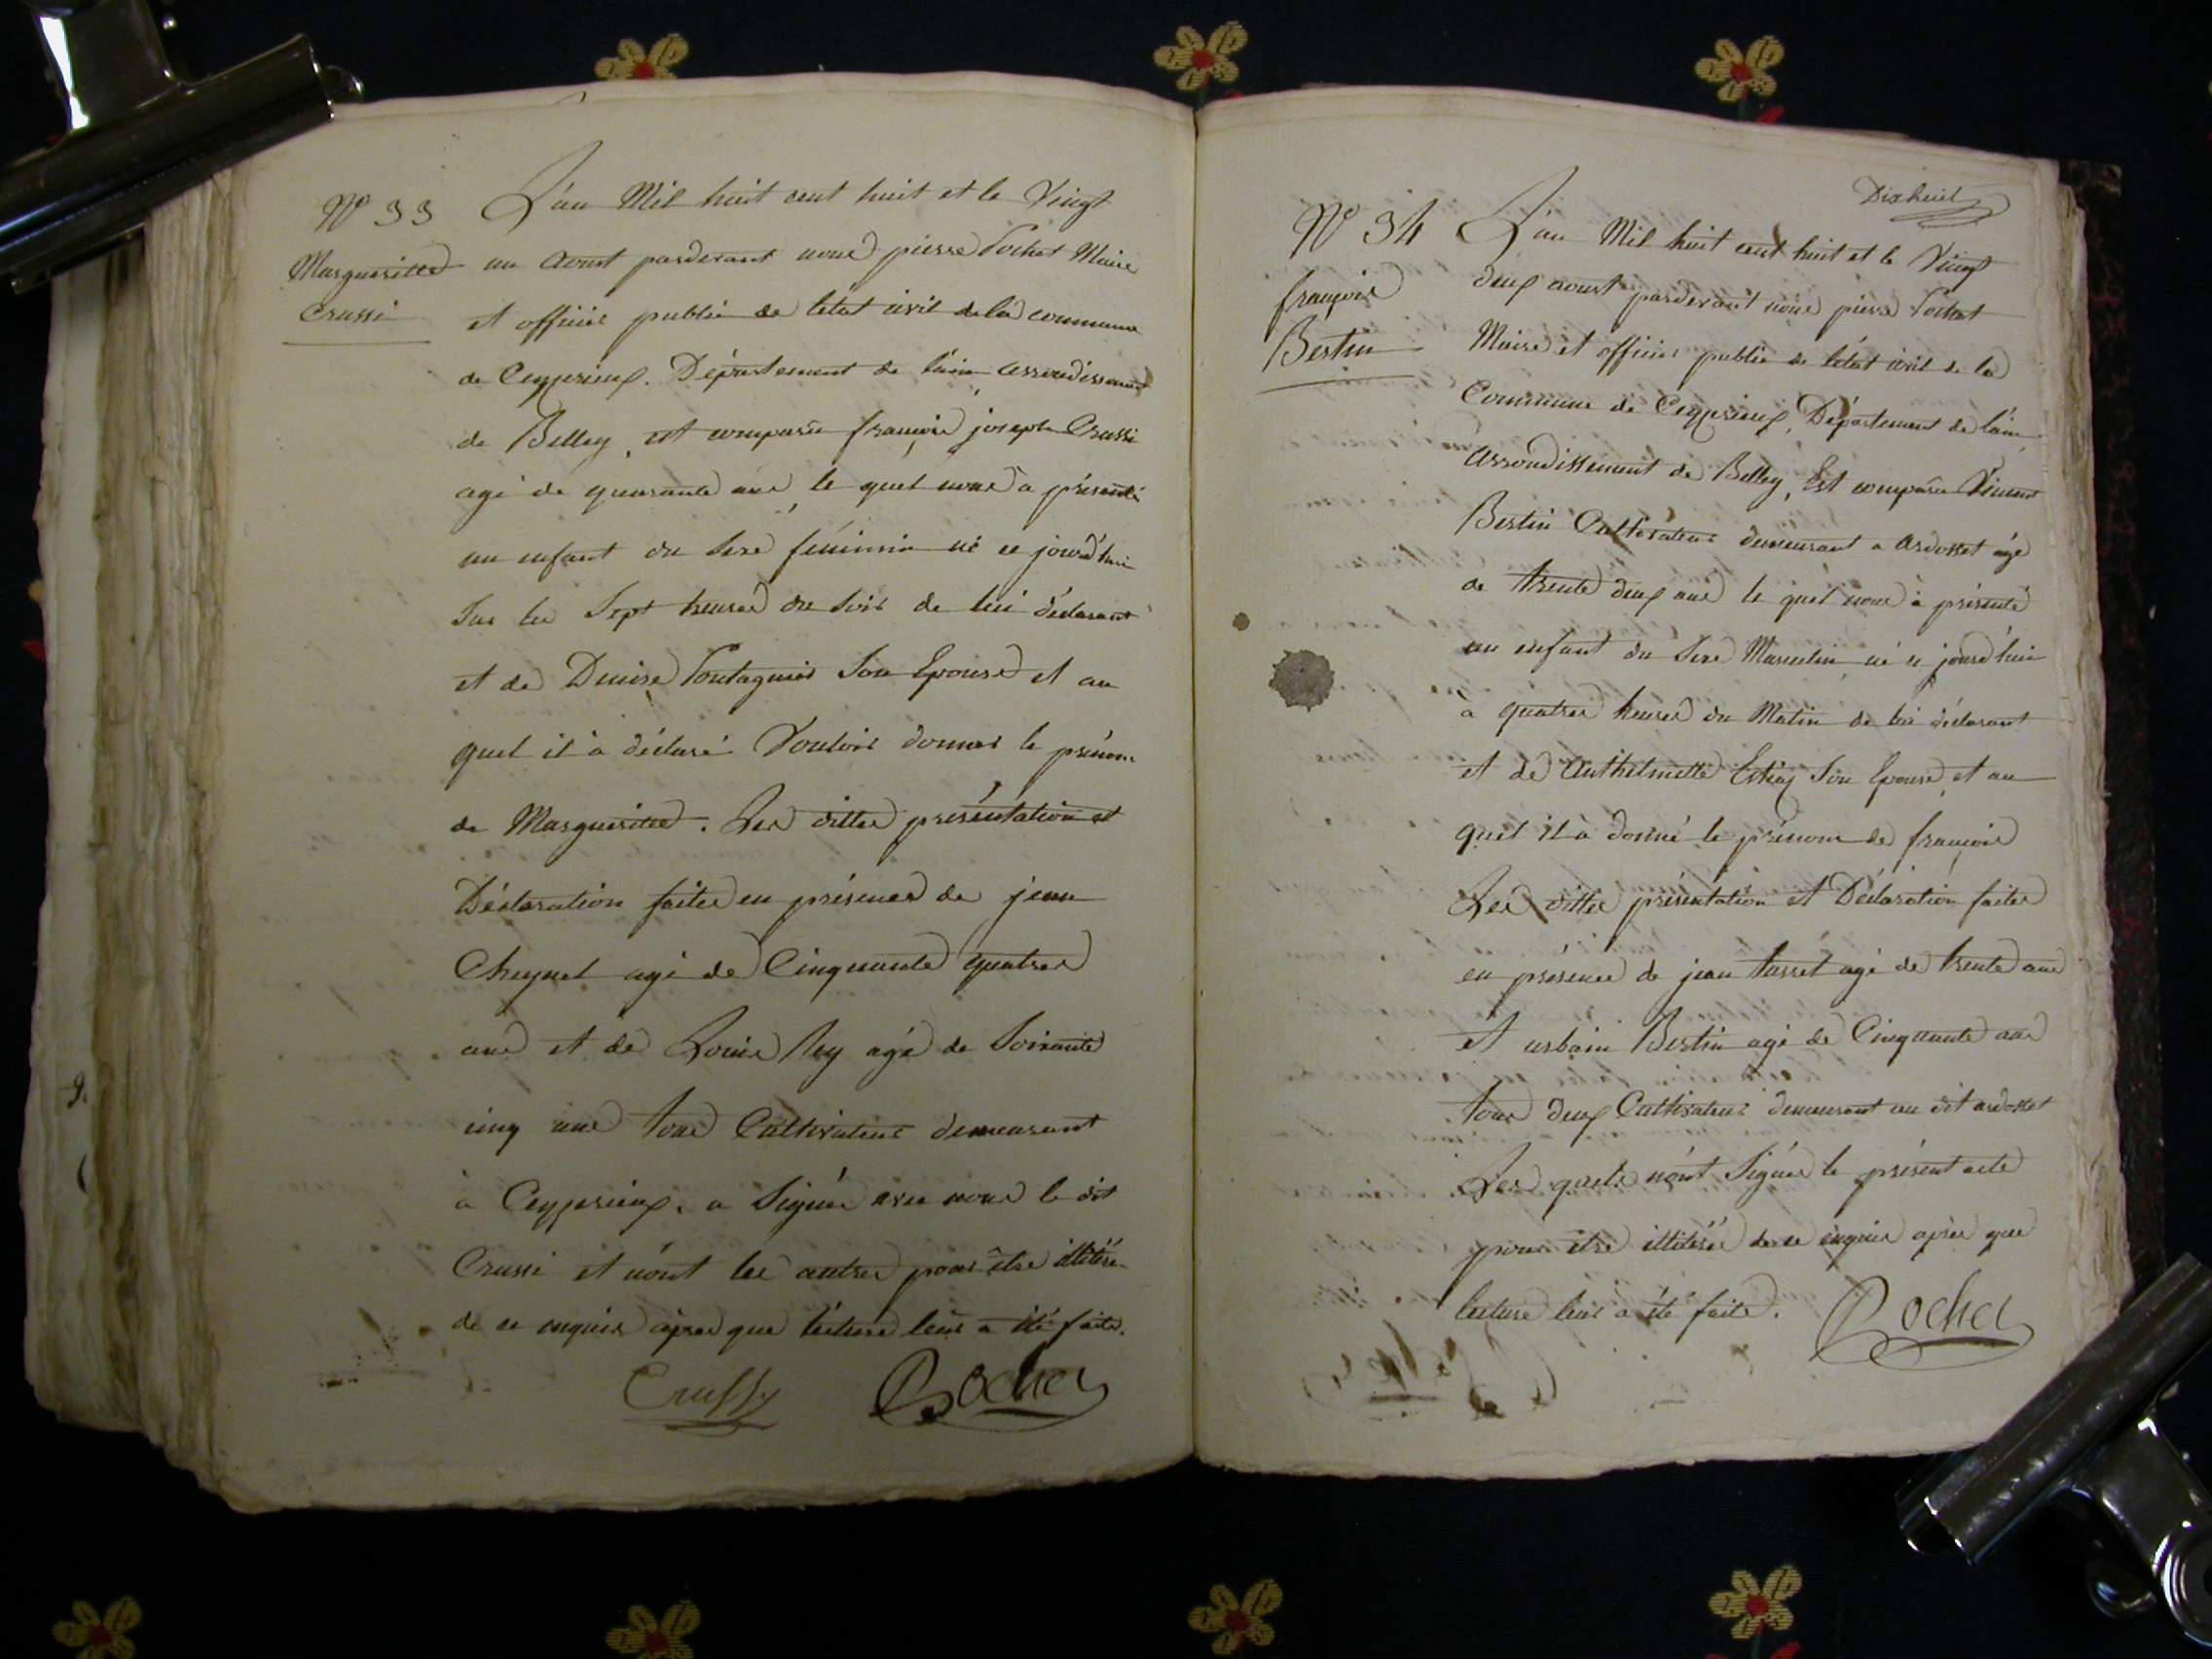 N° 33
Margueritte
Crussi
L'an Mil huit cent huit et le Vingt
un Aoust pardevant nous pierre Pochet Maire
et officier public de l'etat civil de la commune
de Ceyzerieux. Département de l'ain arrondissement
de Belley, est comparu françois joseph Crussi
agé de quarante ans, le quel nous a présenté
un enfant du sexe féminin né ce jourd'hui
sur les Sept heures du soir de lui déclarant
et de Denise Son Epouse et au
quel il à déclaré Vouloir donner le prénom
de Margueritte. Les dittes présentation et
Déclaration faites en présence de jean
Cheynet agé de Cinquante quatre
ans et de Louis Rey agé de Soixante
cinq ans tous Cultivateurs demeurant
à Ceyzerieux. a Signée avec nous le dit
Crussi et n'ont les autres pour être illitérés
de ce enquis apres que lecture leur a été faite.
Crussy Pochet
Dixhuit
N° 34
françois
Bertin
L'an Mil huit cent huit et le Vingt
deux aoust pardevant nous pierre Pochet
Maire et officier public de l'état civil de la
Commune de Ceyzerieux, Département de l'ain
Arrondissement de Belley, Est comparu Vincent
Bertin Cultivateur demeurant a Ardosset âgé
de trente deux ans le quel nous à présenté
un enfant du Sexe Masculin né ce jourd'hui
à quatres heures du Matin de lui déclarant
et de Anthelmette Son Epouse, et au
quel il à donné le prénom de françois
Les dittes présentation et Déclaration faites
en présence de jean agé de trente ans
et urbain Bertin agé de Cinquante ans
tous deux Cultivateurs demeurant au dit ardosset
Les quels n'ont Signée le présent acte
pour être illitérés de ce enquis après que
lecture leur a été faite. Pochet